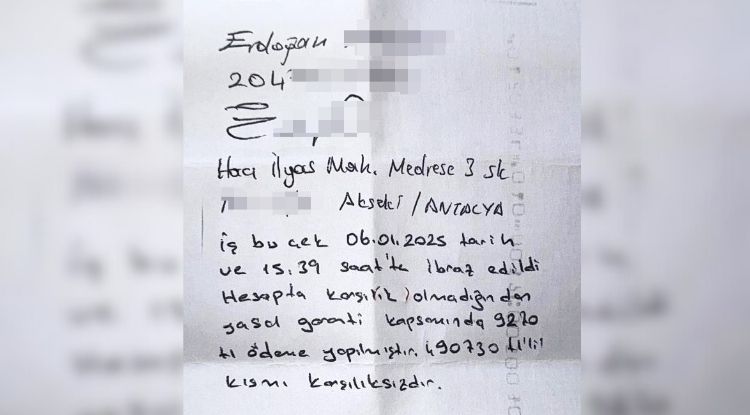 Erdoğan
204
Hacı İlyas Mah. Medrese 3 sk
Akseki / ANTALYA
İş bu çek 06.01.2025 tarih
ve 15.39 saat'te ibraz edildi
Hesapta karşılık olmadığından
yasal garanti kapsamında 9270
tl ödeme yapılmıştır. 490730 tl'lil
kısmı karşılıksızdır.